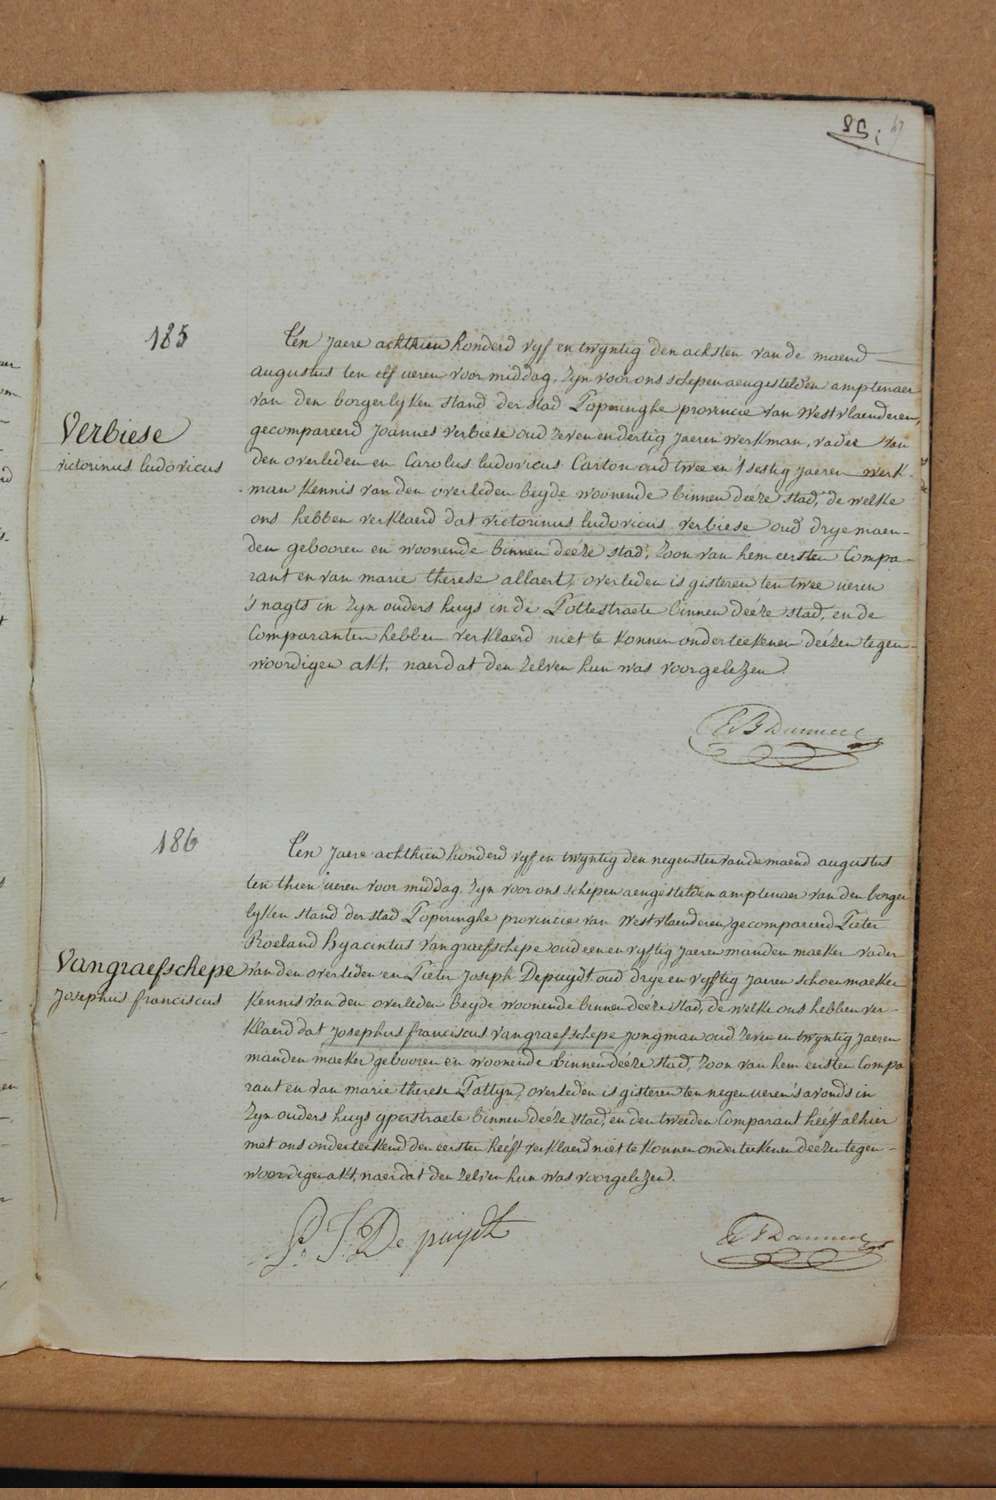 85
185
Verbiese
victorinus ludovicus
Ten Jaere achthien honderd vyf en twyntig den achsten van de maend
augustus ten elf ueren voor middag, zyn voor ons schepen aengestelden amptenaer
van den borgerlyken stand der stad Poperinghe provincie van Westvlaenderen,
gecompareerd Joannes verbiese oud zeven en dertig jaeren werkman, vader van
den overleden en Carolus ludovicus Carton oud twee en 't sestig jaeren werk-
man kennis van den overleden beyde woonende binnen deéze stad, de welke
ons hebben verklaerd dat victorinus ludovicus verbiese oud drye maen-
den gebooren en woonende binnen deéze stad, zoon van hem eersten Compa-
rant en van marie therese allaert, overleden is gisteren ten twee ueren
's nagts in zyn ouders huys in de Pottestraete binnen deéze stad, en de
Comparanten hebben verklaerd niet te konnen onderteekenen deézen tegen-
woordigen akt, naer dat den zelven hun was voorgelezen.
186
Vangraefschepe
Josephus franciscus
Ten Jaere achthien honderd vyf en twyntig den negensten van de maend augustus
ten thien ueren voor middag, zyn voor ons schepen aengestelden amptenaer van den borger
lyken stand der stad Poperinghe provincie van Westvlaenderen, gecompareerd Pieter
Roeland hyacintus Vangraefschepe oud een en vyftig Jaeren manden maeker vader
van den overleden en Pieter Joseph Depuydt oud drye en vyftig Jaeren schoenmaeker
kennis van den overleden beyde woonende binnen deéze stad, de welke ons hebben ver-
klaerd dat Josephus franciscus vangraefschepe jongman oud zeven en twyntig Jaeren
manden maeker gebooren en woonende binnen deéze stad, zoon van hem eersten Compa
rant en van marie therese Pattyn, overleden is gisteren ten negen ueren 's avonds in
zyn ouders huys yperstraete binnen deeze stad, en den tweeden Comparant heeft alhier
met ons onderteekend den eersten heeft verklaerd niet te konnen onderteekenen deezen tegen-
woordigen akt, naer dat den zelven hun was voorgelezen.
P. J. De puydt